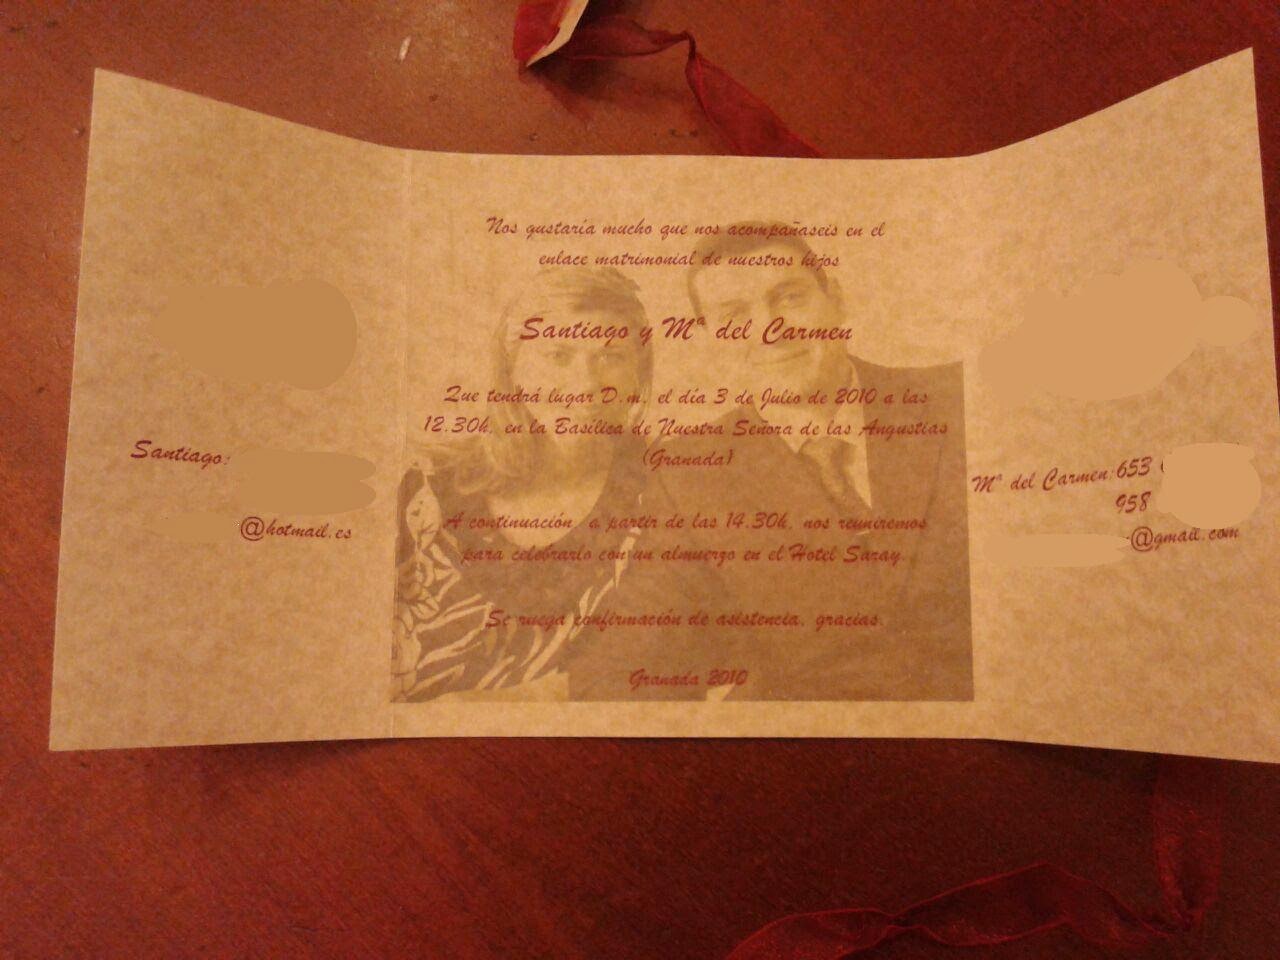 Nos gustaría mucho que nos acompañaseis en el
enlace matrimonial de nuestros hijos
Santiago y Mª del Carmen
Que tendrá lugar D.m. el día 3 de Julio de 2010 a las
12.30h. en la Basílica de Nuestra Señora de las Angustias
(Granada)
A continuación, a partir de las 14.30h. nos reuniremos
para celebrarlo con un almuerzo en el Hotel Saray.
Se ruega confirmación de asistencia, gracias.
Granada 2010
Santiago:
@hotmail.es
Mª del Carmen: 653
958
@gmail.com